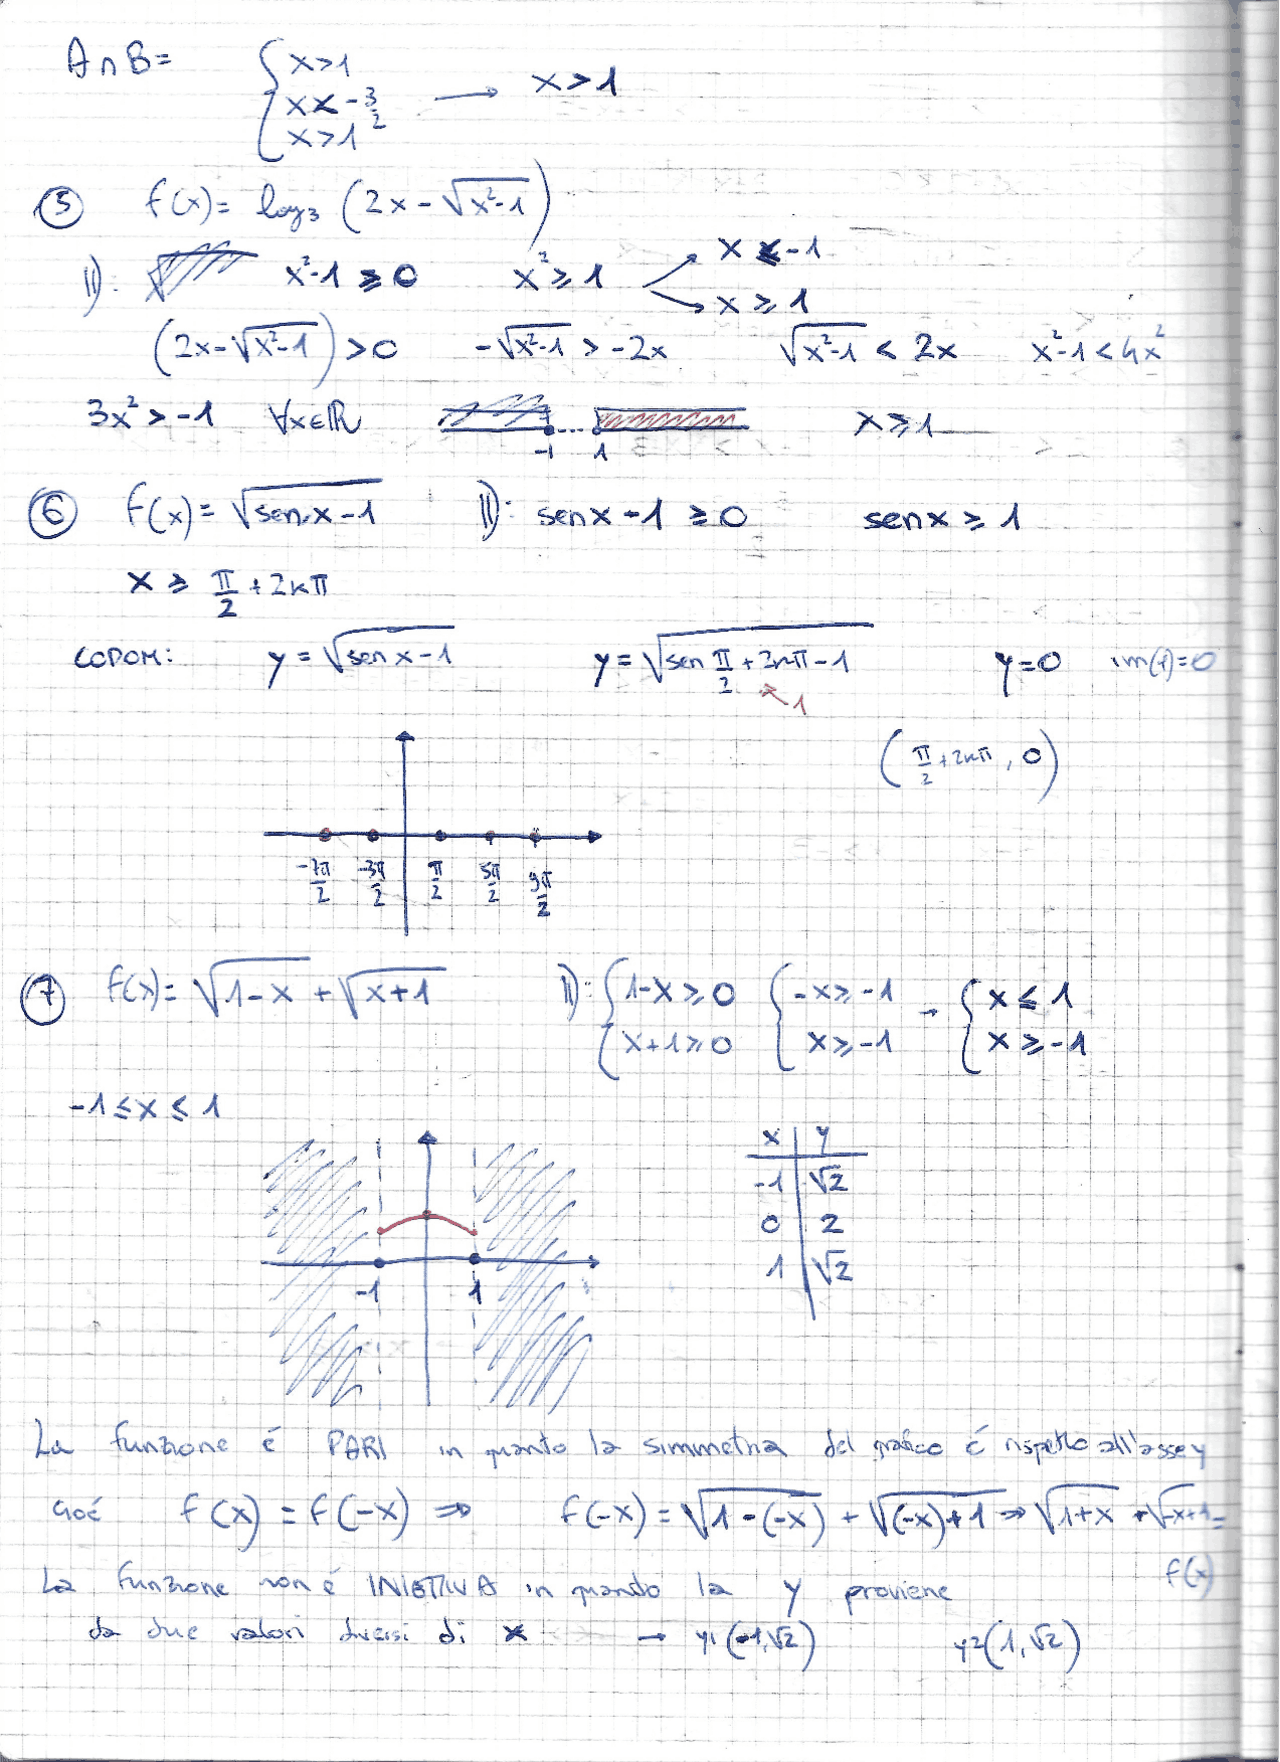 A∩B= { x>1
x<-3/2 → x>1
x>1
⑤ f(x)= log₃ (2x-√(x²-1))
D: x²-1 ≥ 0 x² ≥ 1 x ≤ -1
x ≥ 1
(2x-√(x²-1)) > 0 -√(x²-1) > -2x √(x²-1) < 2x x²-1 < 4x²
3x² > -1 ∀x∈ℝ -1 1 x ≥ 1
⑥ f(x)= √(sen x-1) D: sen x - 1 ≥ 0 sen x ≥ 1
x ≥ π/2 + 2kπ
CODOM: y = √(sen x-1) y = √(sen π/2 + 2kπ - 1) y=0 im(f)=0
1
(π/2 + 2kπ, 0)
-7π/2 -3π/2 π/2 5π/2 9π/2
⑦ f(x)= √(1-x) + √(x+1) D: { 1-x ≥ 0 { -x ≥ -1 → { x ≤ 1
x+1 ≥ 0 x ≥ -1 x ≥ -1
-1 ≤ x ≤ 1
x | y
-1 | √2
0 | 2
1 | √2
-1 1
La funzione è PARI in quanto la simmetria del grafico è rispetto all'asse y
cioè f(x) = f(-x) ⇒ f(-x) = √(1-(-x)) + √((-x)+1) ⇒ √(1+x) + √(-x+1) =
f(x)
La funzione non è INIETTIVA in quando la y proviene
da due valori diversi di x → y1(-1,√2) y2(1,√2)